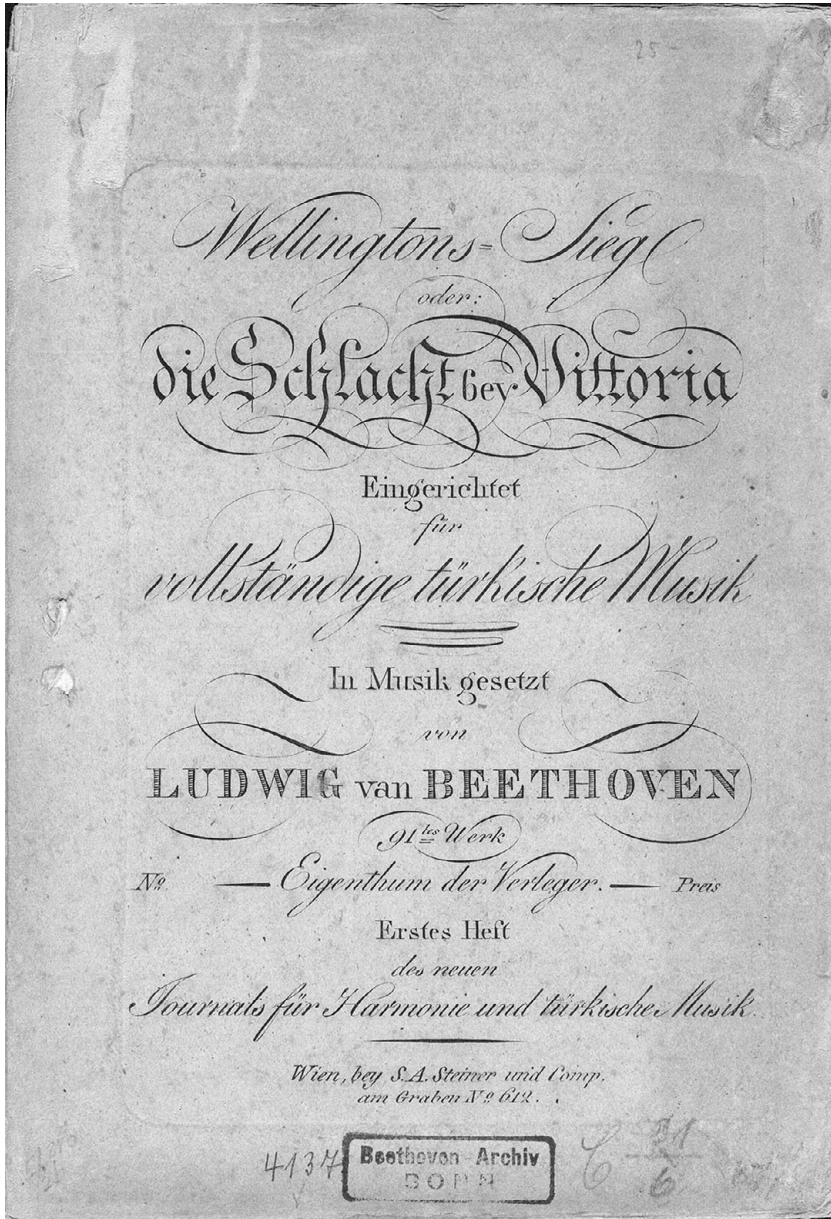 25-
Wellingtons= Sieg
oder:
die Schlacht bey Vittoria
Eingerichtet
für
vollständige türkische Musik
In Musik gesetzt
von
LUDWIG van BEETHOVEN
91tes Werk
No. — Eigenthum der Verleger. — Preis
Erstes Heft
des neuen
Journals für Harmonie und türkische Musik.
Wien, bey S.A. Steiner und Comp.
am Graben No 612.
4137 Beethoven-Archiv
BONN
C 31
6